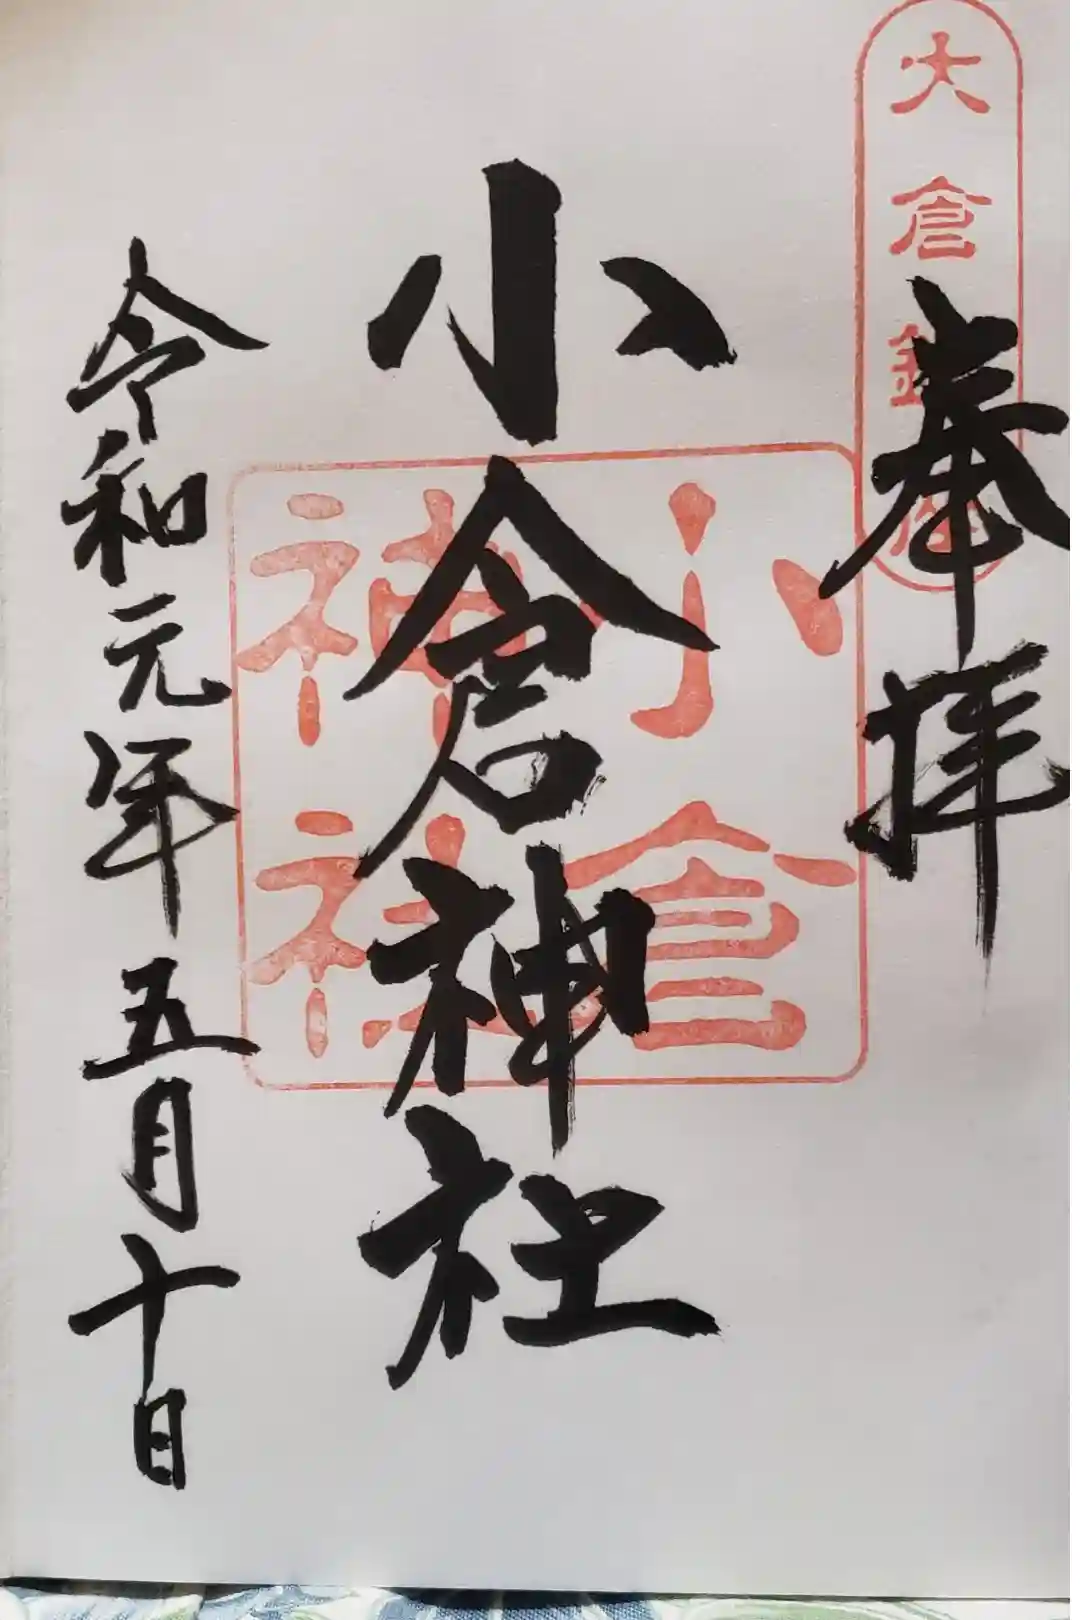 奉拝
大倉鎮座
小倉神社
小倉
神社
令和元年五月十日